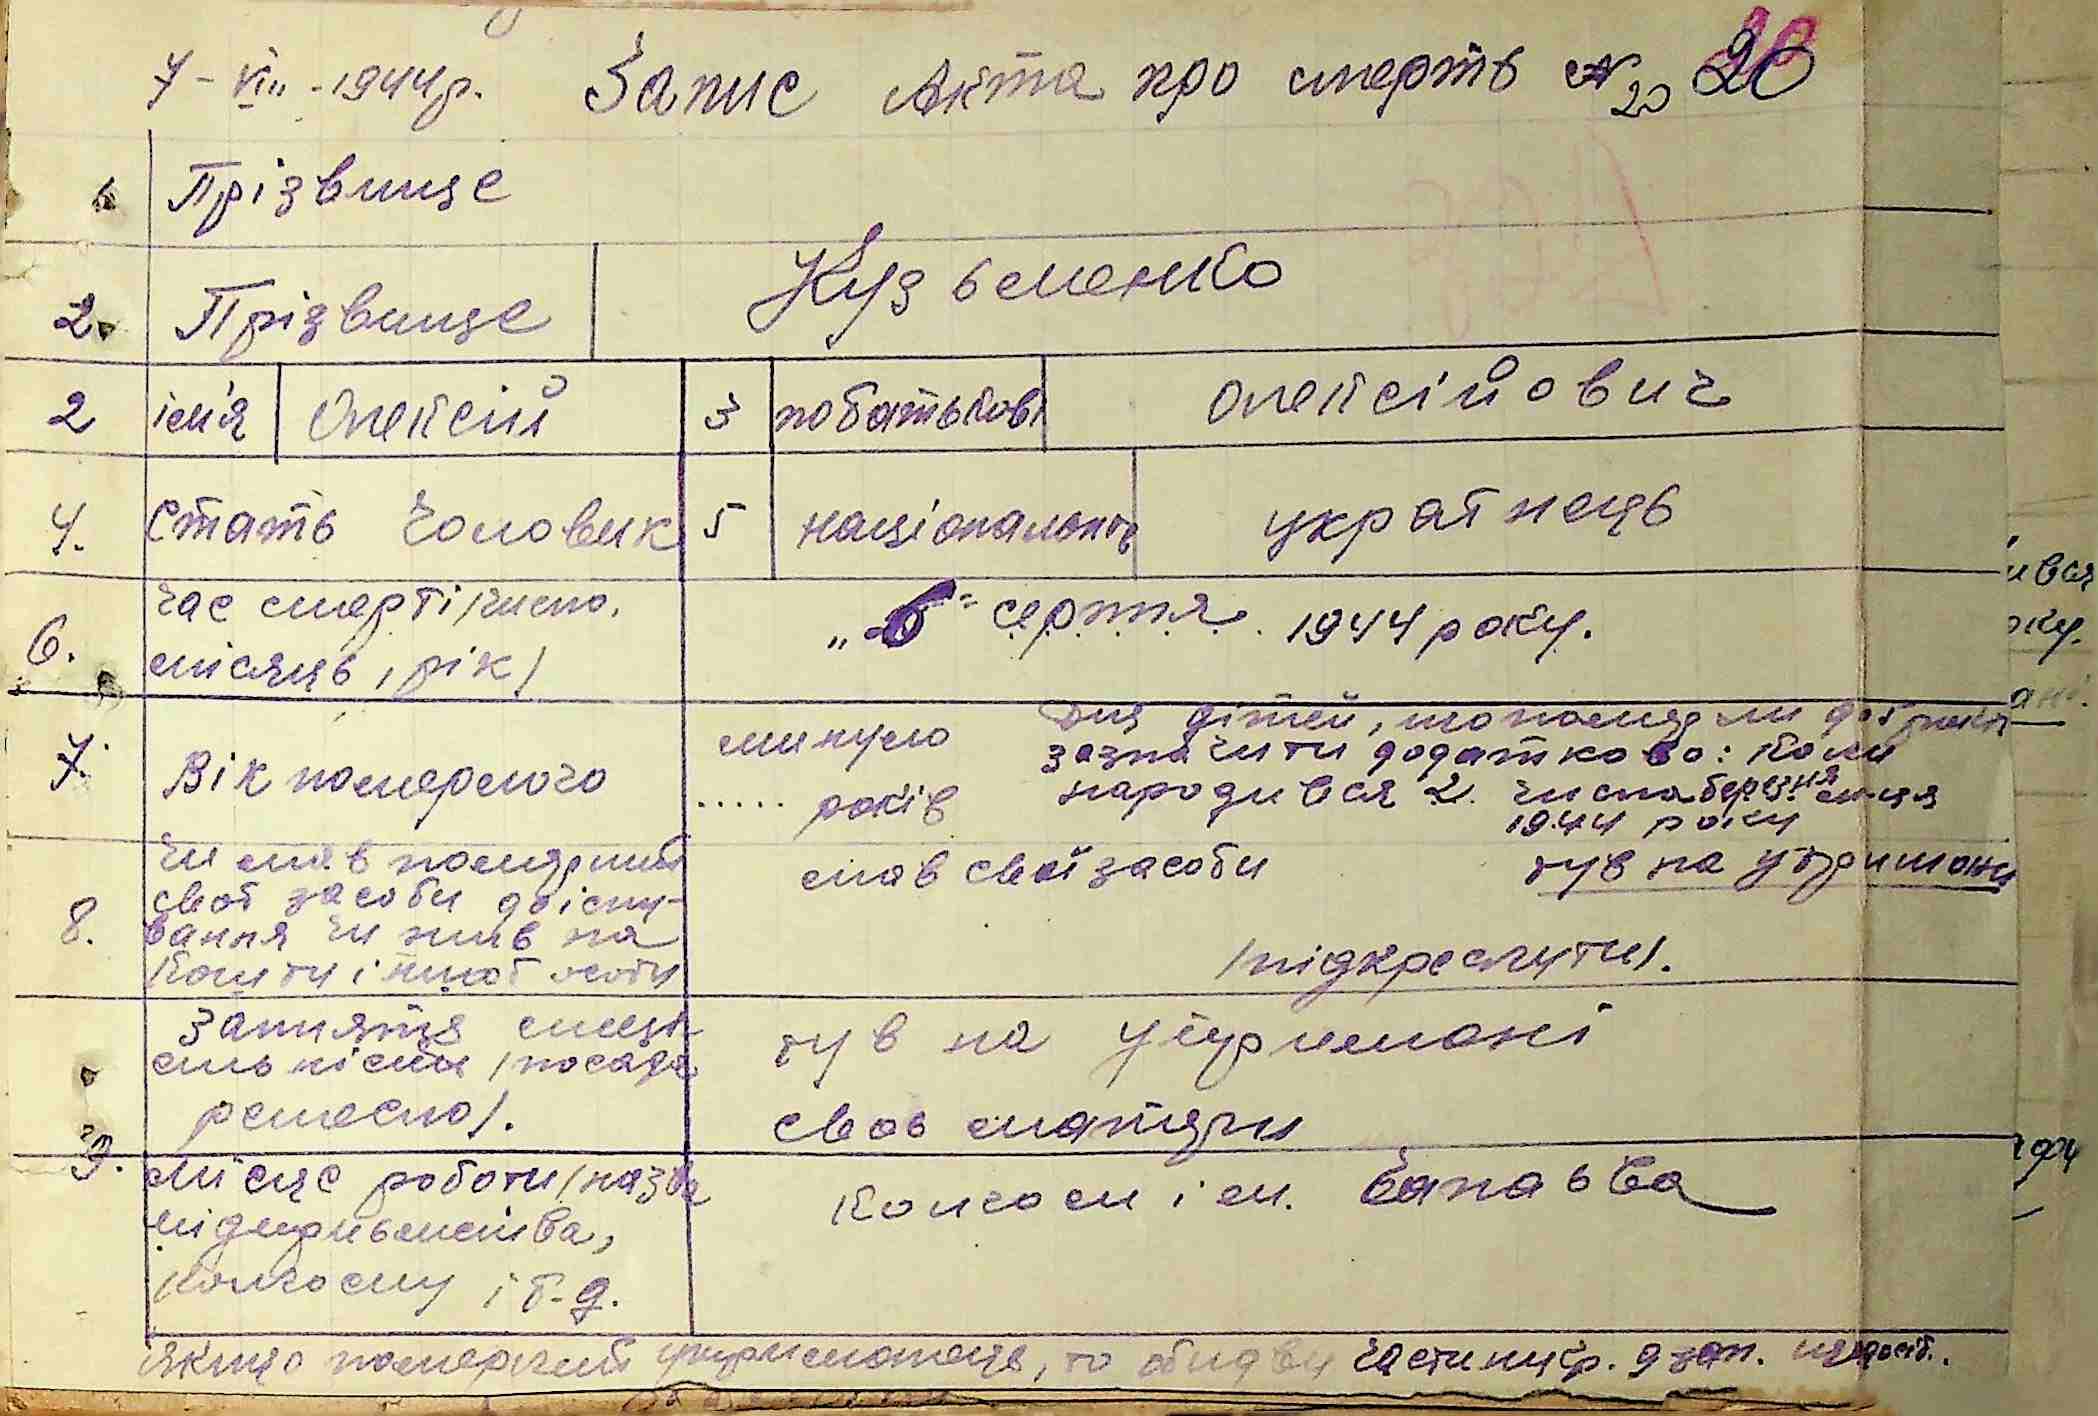 7 - VIII - 1944р. Запис Акта про смерть №20 20
1 Прізвище
2. Прізвище Кузьменко
2 ім'я Олексій 3 по батькові Олексійович
4. Стать Чоловик 5 національність українець
6. Час смерті /число,
місяць, рік/ „6" серпня 1944 року.
7. Вік померлого
минуло
..... років
Для дітей, що померли до 1 року
зазначити додатково: коли
народився 2 числа березня м-ця
1944 року
8. Чи мав померший
свої засоби до існу-
вання чи жив на
кошти іншої особи
мав свої засоби був на утриманні
/підкреслити/.
9. Заняття спеці
альність /посада
ремесло/.
був на утримані
своє матери
Місце роботи /назва
підприьмства,
колгоспу і т.д.
Колгосп ім.
Якщо померший утриманець, то обидви частини гр. 9 зап.